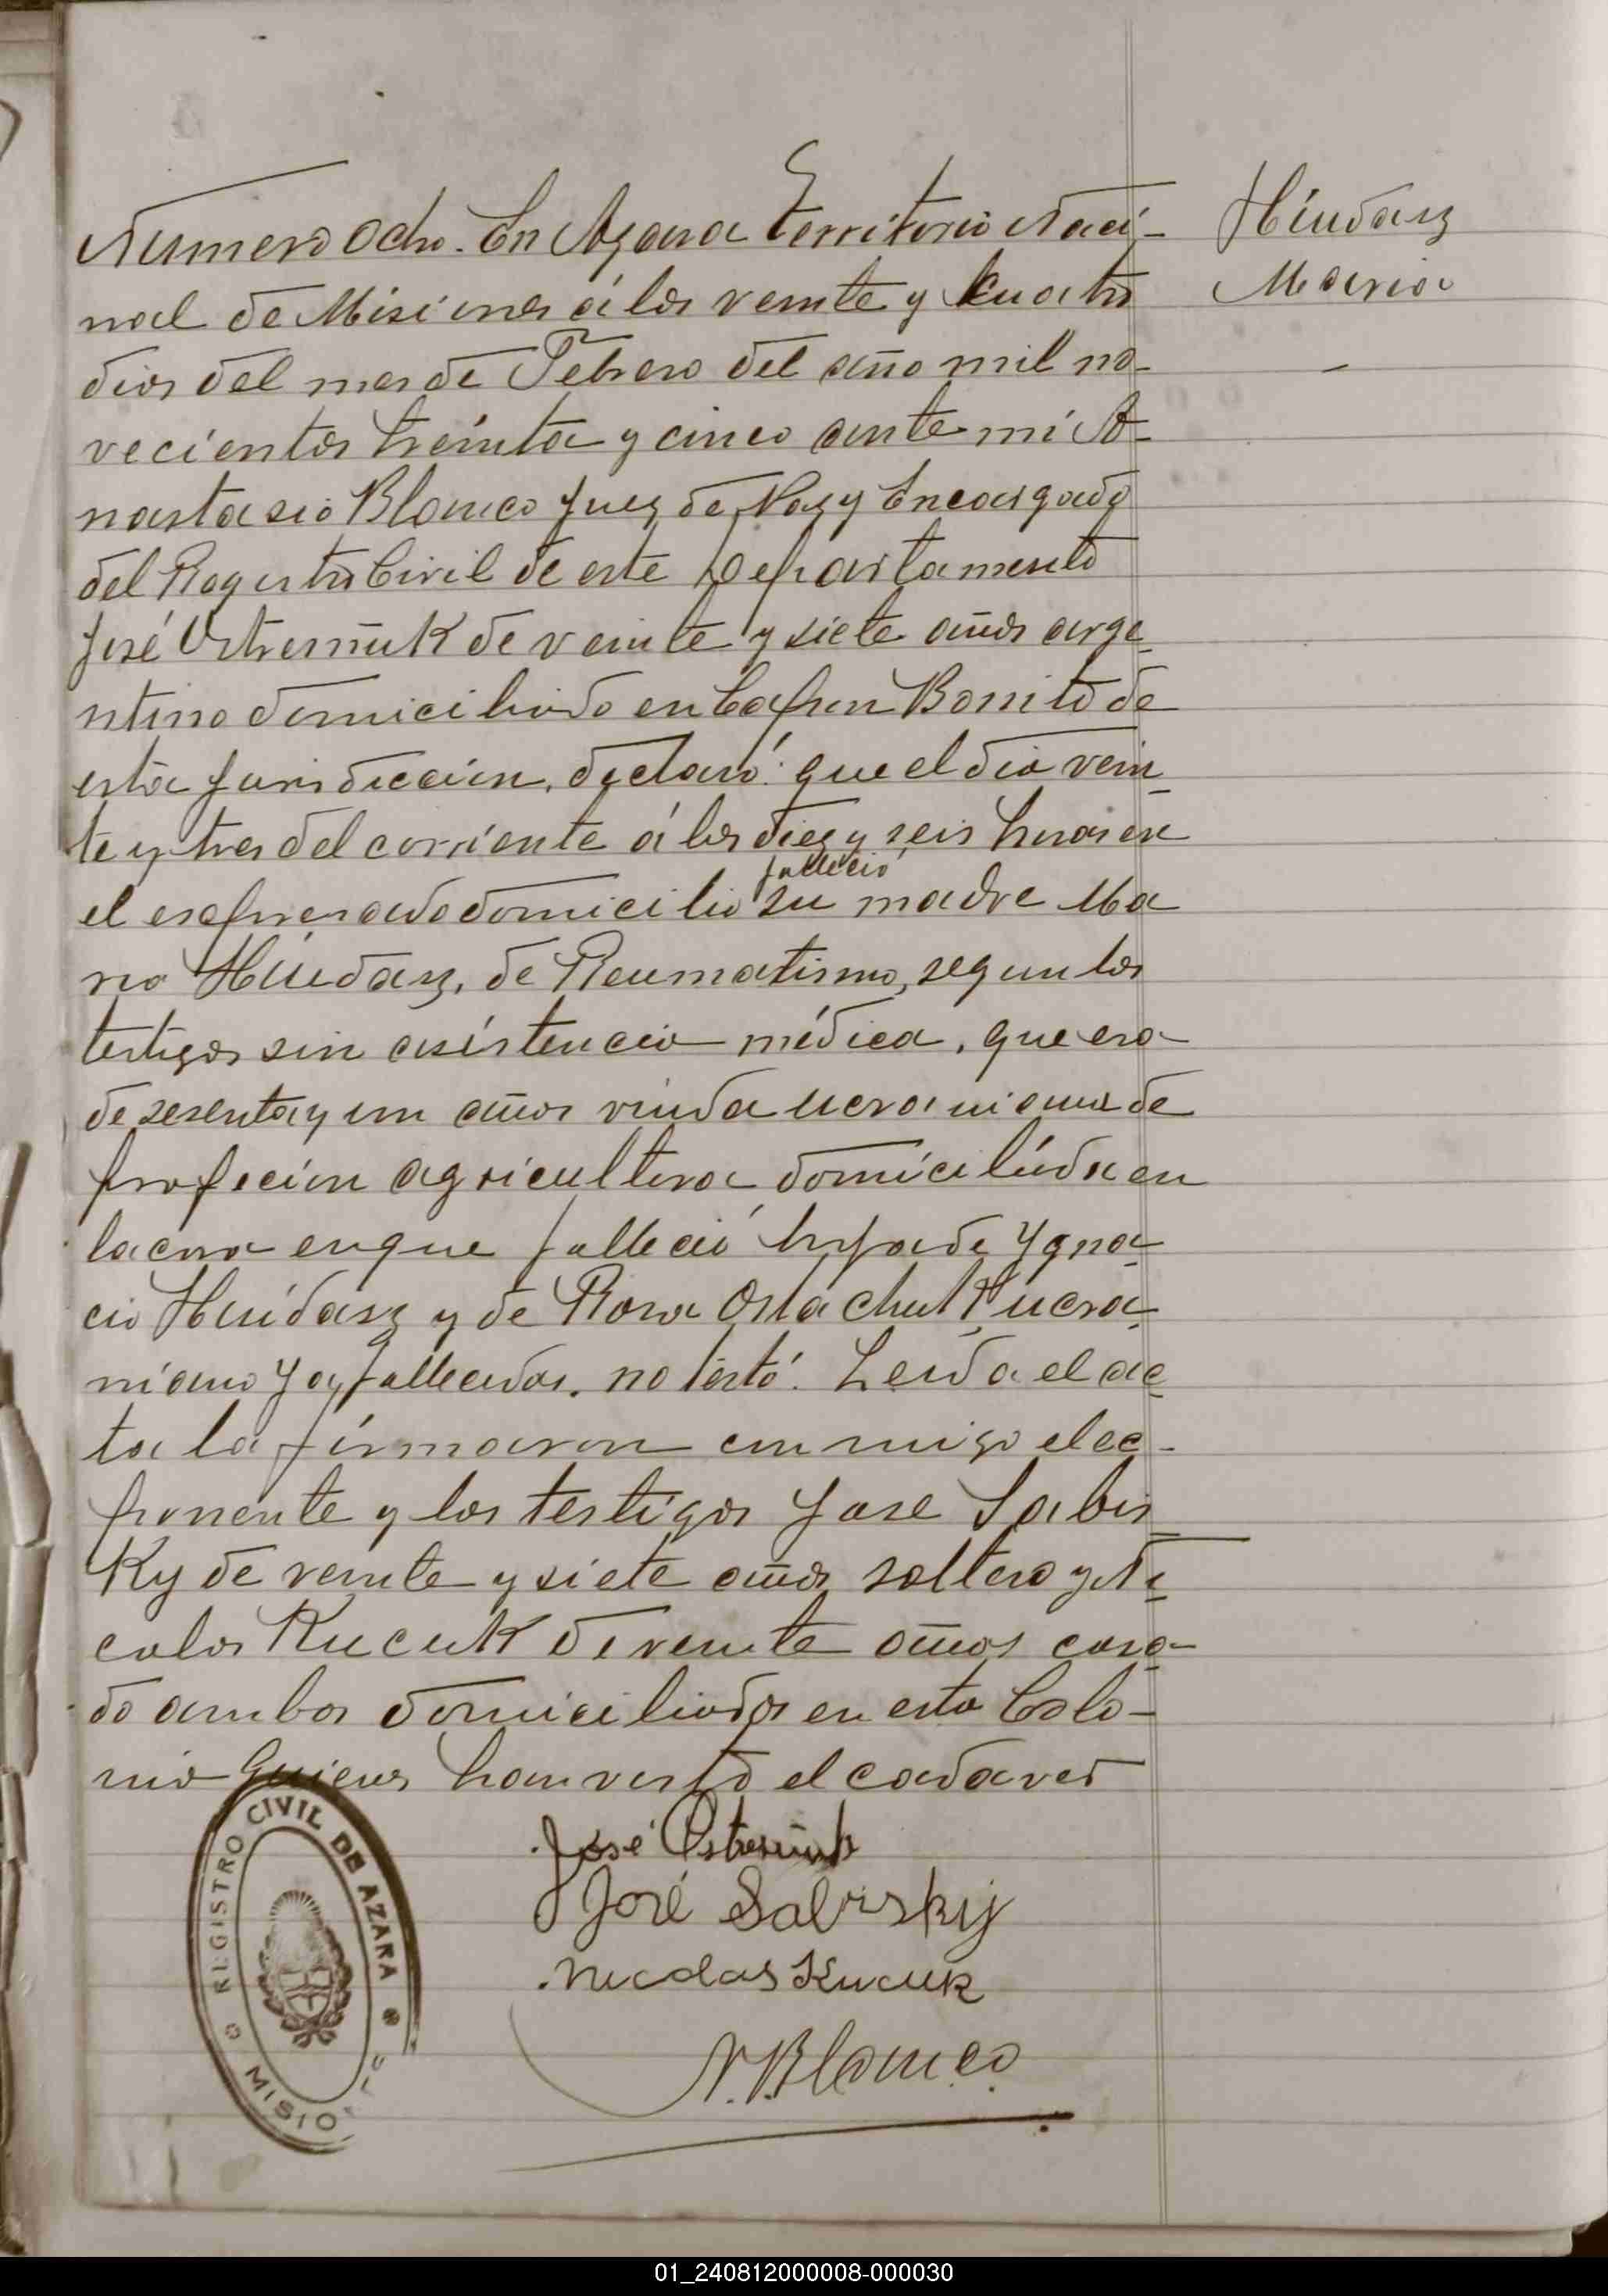 Numero Ocho. En Azara Territorio Naci-
nal de Misiones á los veinte y cuatro
dias del mes de Febrero del año mil no-
vecientos treinta y cinco ante mi A-
nastasio Blanco Juez de Paz y Encargado
del Registro Civil de este Departamento
José Ostresñuk de veinte y siete años arge
ntino domiciliado en Capon Bonito de
esta Jurisdiccion, declaró: que el dia vein
te y tres del corriente á las diez y seis horas en
falleció
el expresado domicilio su madre Ma
ria Hiudasz, de Reumatismo, segun los
testigos sin asistencia médica, que era
de sesenta y un años viuda ucraniana de
profecion agricultora domiciliada en
la casa en que falleció hija de Ygna
cio Hiudasz y de Rosa Ostachuk ucra
niano Ya fallecidos. no testó. Leida el ac
ta la firmaron conmigo el ec-
ponente y los testigos José Sabis
Ky de veinte y siete años soltero y Ni
colas Kucuk de veinte años casa
do ambos domiciliados en esta Colo-
nia Quienes han visto el cadaver
José Ostresñuk
José Sabiskij
Nicolas Kucuk
A. Blanco
Hiudasz
Maria
REGISTRO CIVIL DE AZARA
MISIO
01_240812000008-000030